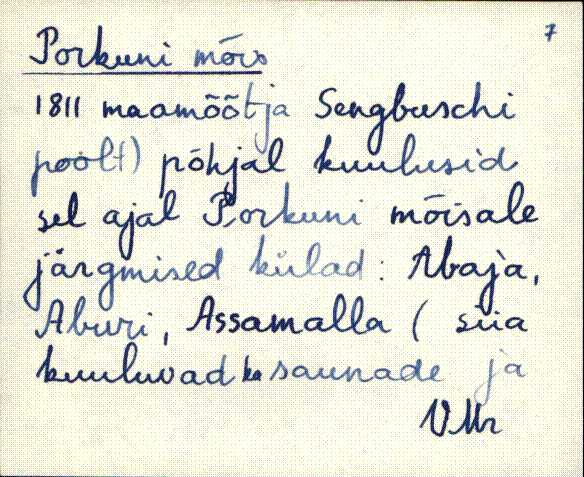 7
Porkuni mõis
1811 maamõõtja Sengbuschi
poolt) põhjal kuulusid
sel ajal Porkuni mõisale
järgmised külad: Abaja,
Aburi, Assamalla ( siia
kuuluvad ka saunade ja
VMr